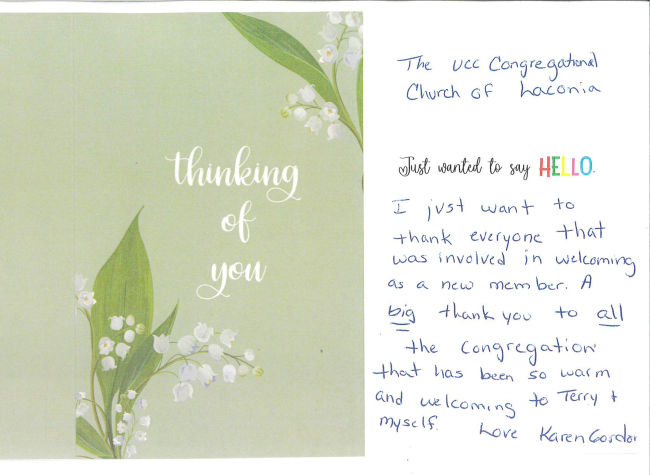 thinking
of
you
The UCC Congregational
Church of Laconia
Just wanted to say HELLO.
I just want to
thank everyone that
was involved in welcoming
as a new member. A
big thank you to all
the Congregation
that has been so warm
and welcoming to Terry +
myself. Love Karen Gordon